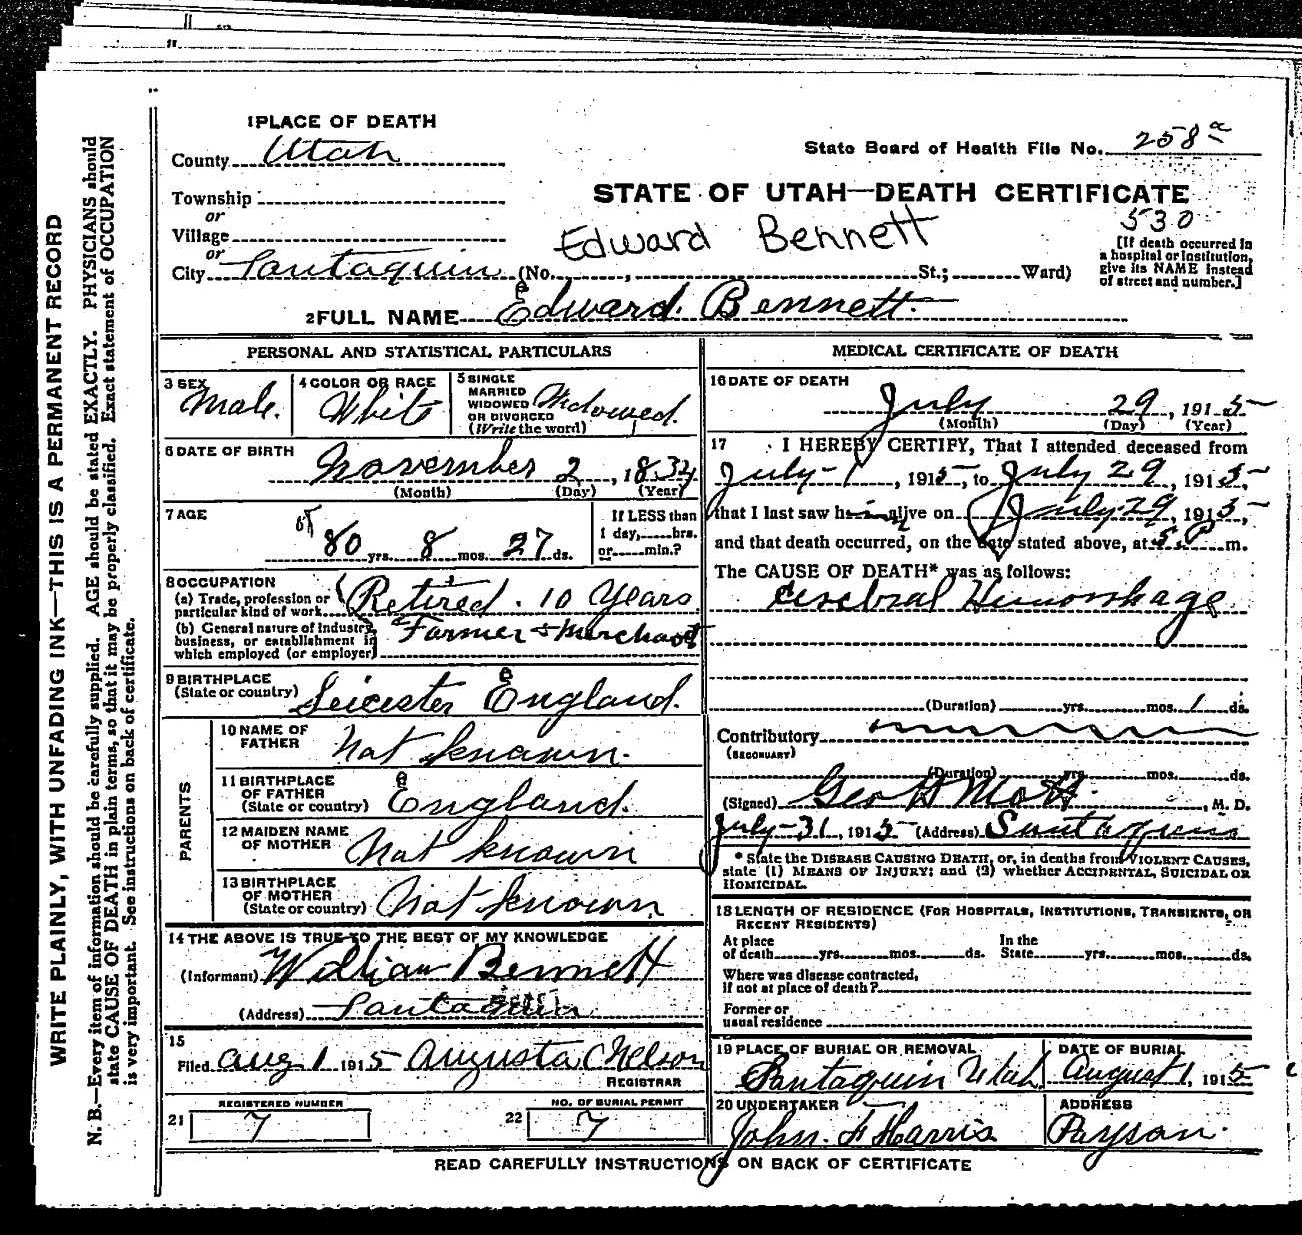 1 PLACE OF DEATH
County Utah
State Board of Health File No. 258a
Township
or
Village
or
City Santaquin (No. , St.; Ward)
STATE OF UTAH—DEATH CERTIFICATE
530
Edward Bennett
[If death occurred in
a hospital or institution,
give its NAME instead
of street and number.]
2 FULL NAME Edward. Bennett.
PERSONAL AND STATISTICAL PARTICULARS
3 SEX
Male.
4 COLOR OR RACE
White
5 SINGLE
MARRIED
WIDOWED
OR DIVORCED
(Write the word)
Widowed.
6 DATE OF BIRTH
November 2, 1834
(Month) (Day) (Year)
7 AGE
80 yrs. 8 mos. 27 ds.
If LESS than
1 day, hrs.
or min.?
8 OCCUPATION
(a) Trade, profession or
particular kind of work
Retired. 10 Years
(b) General nature of Industry,
business, or establishment in
which employed (or employer)
Farmer & Merchant
9 BIRTHPLACE
(State or country)
Leicester England.
PARENTS
10 NAME OF
FATHER
Not known.
11 BIRTHPLACE
OF FATHER
(State or country)
England.
12 MAIDEN NAME
OF MOTHER
Not known
13 BIRTHPLACE
OF MOTHER
(State or country)
Not known
14 THE ABOVE IS TRUE TO THE BEST OF MY KNOWLEDGE
(Informant) William Bennett
(Address) Santaquin
15
Filed Aug 1 1915 Augusta Nelson
REGISTRAR
REGISTERED NUMBER
21 7
NO. OF BURIAL PERMIT
22 7
MEDICAL CERTIFICATE OF DEATH
16 DATE OF DEATH
July 29, 1915
(Month) (Day) (Year)
17 I HEREBY CERTIFY, That I attended deceased from
July 1, 1915, to July 29, 1915,
that I last saw him alive on July 29, 1915,
and that death occurred, on the date stated above, at 5.P m.
The CAUSE OF DEATH* was as follows:
Cerebral Hemorrhage
(Duration) yrs. mos. 1 ds.
Contributory
(SECONDARY)
(Duration) yrs. mos. ds.
(Signed) Geo H Mott , M. D.
July-31, 1915 (Address) Santaquin
* State the DISEASE CAUSING DEATH, or, in deaths from VIOLENT CAUSES,
state (1) MEANS OF INJURY; and (2) whether ACCIDENTAL, SUICIDAL OR
HOMICIDAL.
18 LENGTH OF RESIDENCE (FOR HOSPITALS, INSTITUTIONS, TRANSIENTS, OR
RECENT RESIDENTS)
At place
of death yrs. mos. ds.
In the
State yrs. mos. ds.
Where was disease contracted,
if not at place of death?
Former or
usual residence
19 PLACE OF BURIAL OR REMOVAL
Santaquin Utah
DATE OF BURIAL
August 1, 1915
20 UNDERTAKER
John. F Harris
ADDRESS
Payson.
READ CAREFULLY INSTRUCTIONS ON BACK OF CERTIFICATE
WRITE PLAINLY, WITH UNFADING INK—THIS IS A PERMANENT RECORD
N. B.—Every item of information should be carefully supplied. AGE should be stated EXACTLY. PHYSICIANS should
state CAUSE OF DEATH in plain terms, so that it may be properly classified. Exact statement of OCCUPATION
is very important. See instructions on back of certificate.